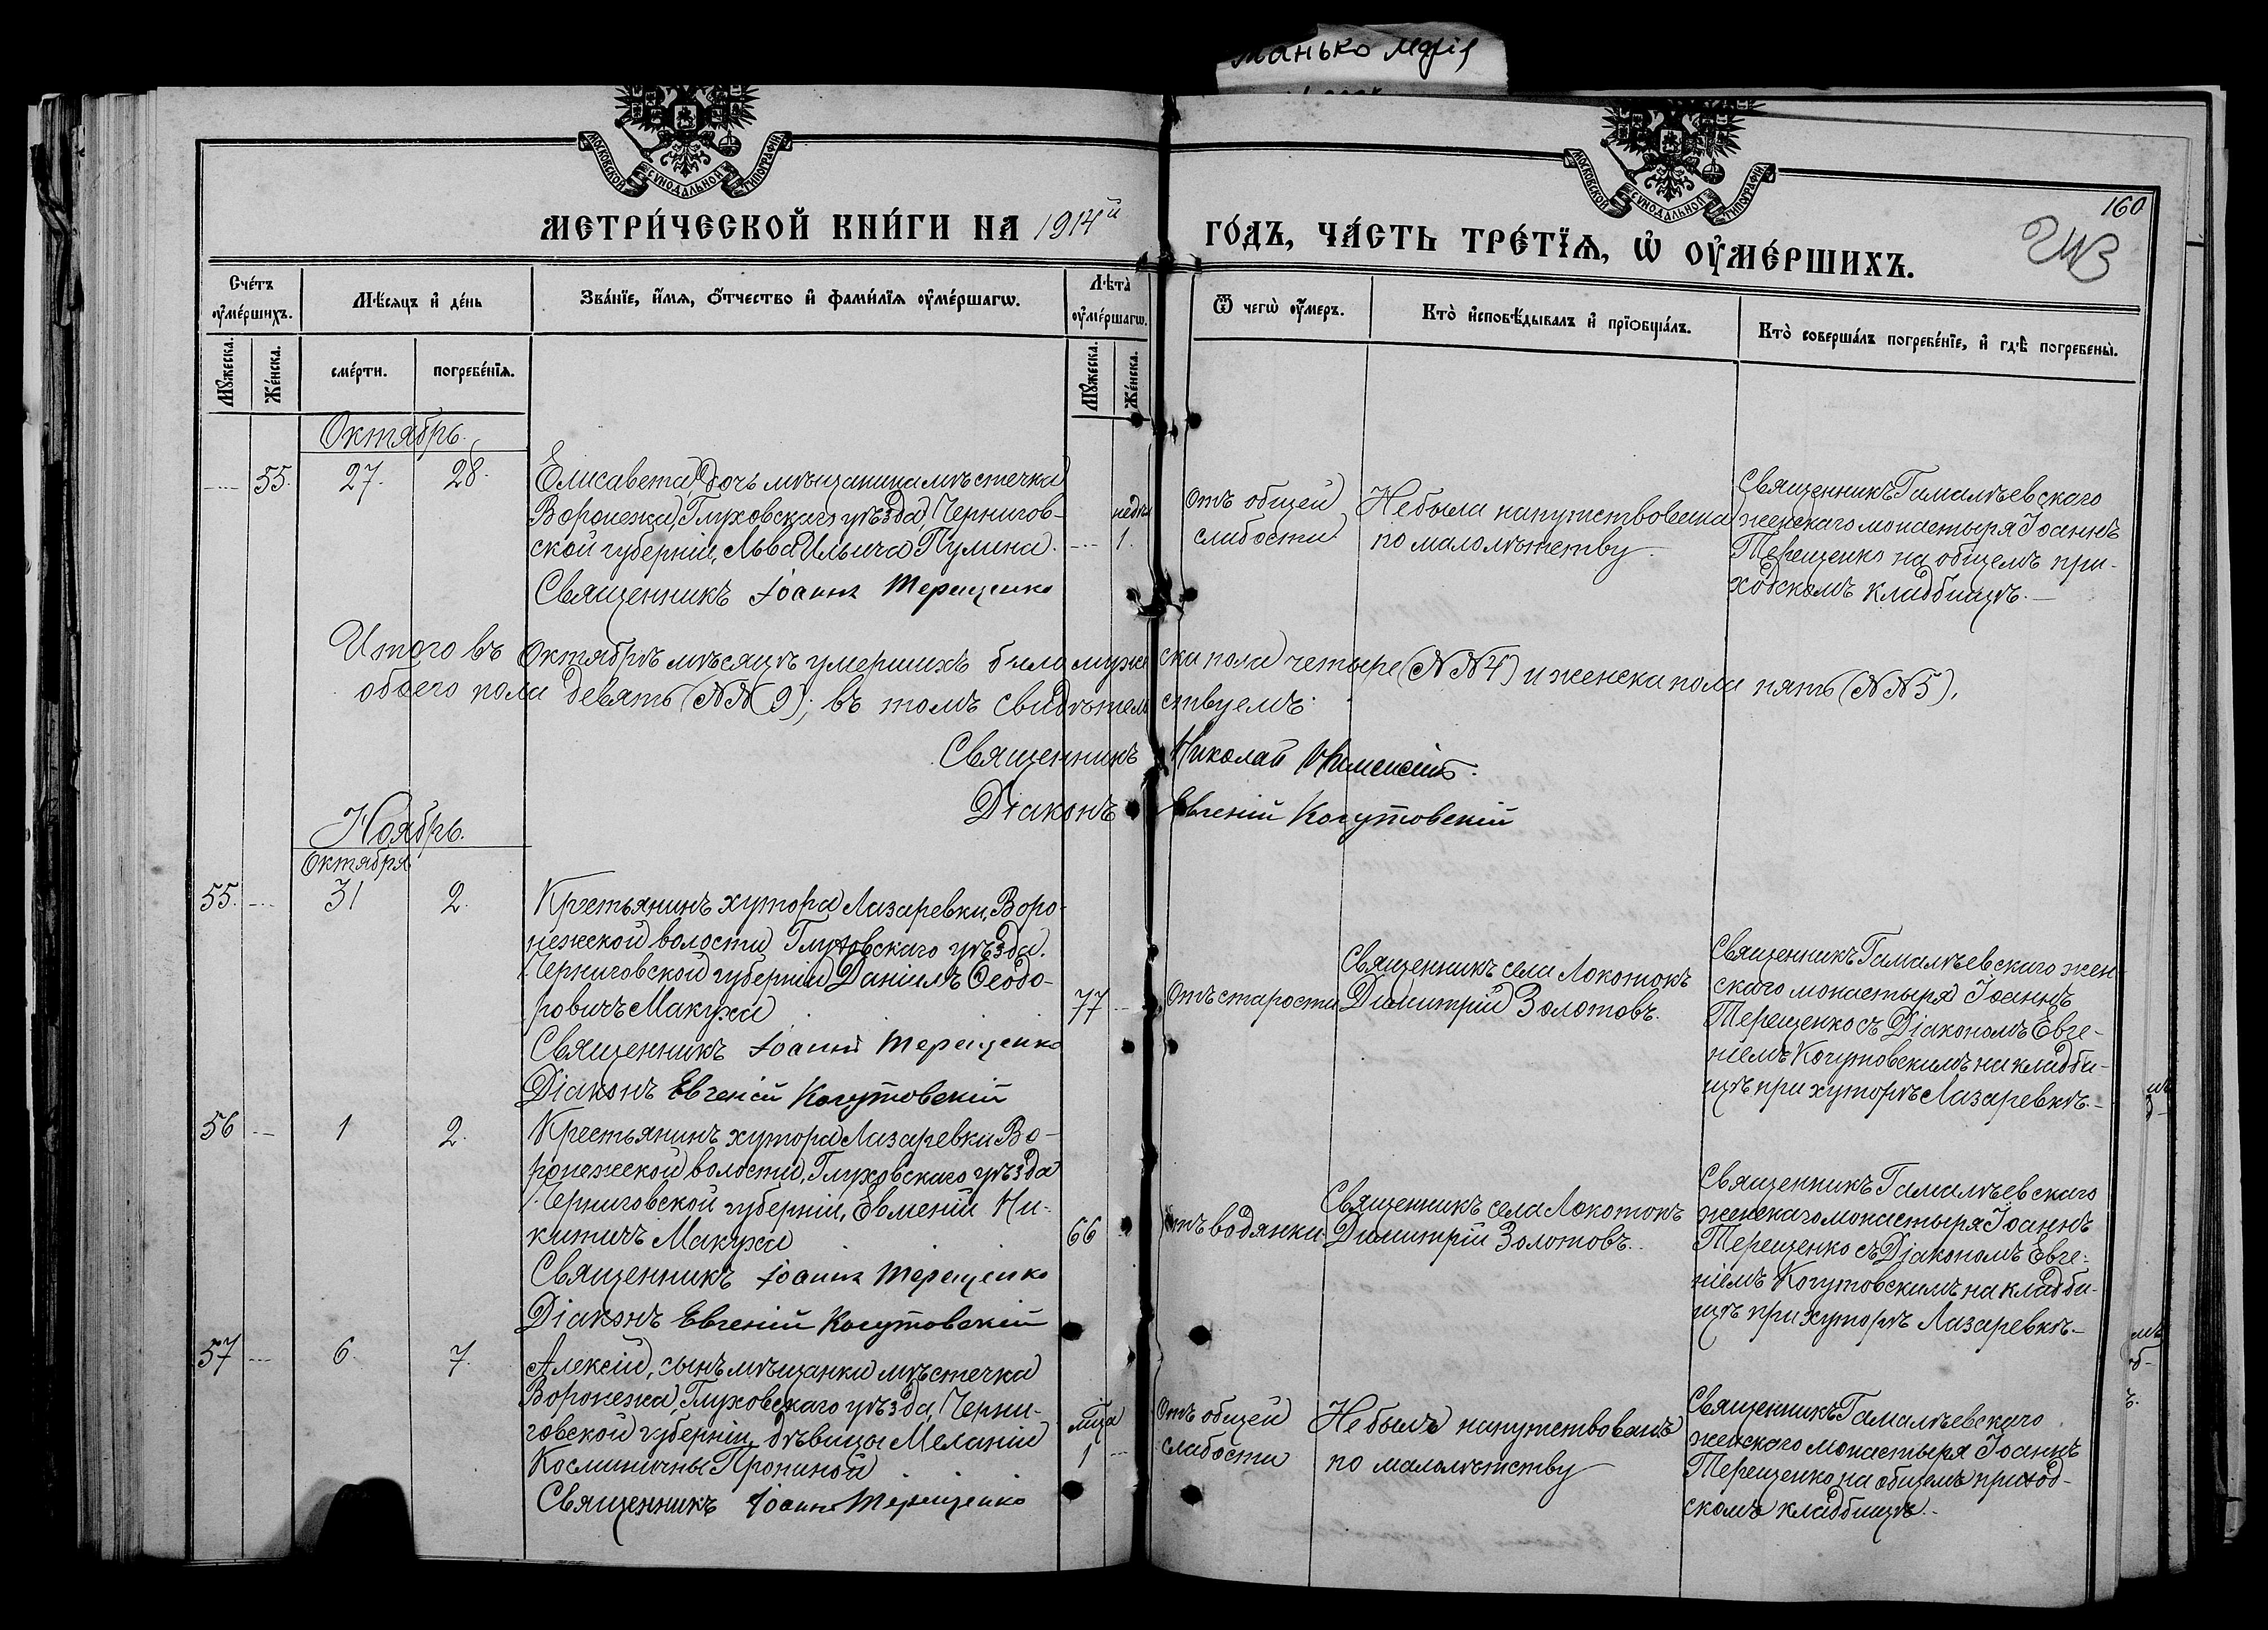 Манько Марія
МОСКОВСКОЙ СѴНОДАЛЬНОЙ ТИПОГРАФІИ
МОСКОВСКОЙ СѴНОДАЛЬНОЙ ТИПОГРАФІИ
160
МЕТРИ́ЧЕСКОЙ КНИ́ГИ НА 1914й ГО́ДЪ, ЧА́СТЬ ТРЕ́ТЇѦ, Ѡ҆ ОУ҆МЕ́РШИХЪ.
Сче́тъ оу҆ме́ршихъ.
Мѣ́сяцъ и҆ де́нь
Зва́нїе, и҆́мя, ѻ҆́тчество и҆ фами́лїя оу҆ме́ршагѡ.
Лѣта̀ оу҆ме́ршагѡ.
Ѿ чегѡ̀ оу҆́меръ.
Кто̀ и҆сповѣ́дывалъ и҆ прїѻбща́лъ.
Кто̀ соверша́лъ погребе́нїе, и҆ гдѣ̀ погребены̀.
Мꙋ́жеска.
Же́нска.
сме́рти.
погребе́нїя.
Мꙋ́жеска.
Же́нска.
Октябрь.
55.
27.
28.
Елисавета, дочь мѣщанина мѣстечка
Воронежа, Глуховскаго уѣзда, Чернигов-
ской губерніи, Льва Ильича Пулина.
Священникъ Іоаннъ Терещенко
недѣл.
1.
Отъ общей
слабости
Не была напутствована
по малолѣтству.
Священникъ Гамалѣевскаго
женскаго монастыря Іоаннъ
Терещенко на общемъ при-
ходскомъ кладбищѣ.
Итого въ Октябрѣ мѣсяцѣ умершихъ было мужеска пола четыре (№№4) и женска пола пять (№№5),
обоего пола девять (№№9); въ томъ свидѣтельствуемъ:
Священникъ Николай
Діаконъ Евгеній Когутовскій
Ноябрь.
Октября
55.
31
2.
Крестьянинъ хутора Лазаревки, Воро-
нежской волости Глуховскаго уѣзда.
Черниговской губерніи Даніилъ Ѳеодо-
ровичъ Макуха
Священникъ Іоаннъ Терещенко
Діаконъ Евгеній Когутовскій
77
Отъ старости
Священникъ села Локотокъ
Димитрій Золотовъ.
Священникъ Гамалѣевскаго жен
скаго монастыря Іоаннъ
Терещенко съ Діакономъ Евге-
ніемъ Когутовскимъ на кладби-
щѣ при хуторѣ Лазаревкѣ.
56
1
2.
Крестьянинъ хутора Лазаревки Во-
ронежской волости, Глуховскаго уѣзда
Черниговской губерніи, Евменій Ни-
китичъ Макуха
Священникъ Іоаннъ Терещенко
Діаконъ Евгеній Когутовскій
66
Отъ водянки
Священникъ села Локотокъ
Димитрій Золотовъ.
Священникъ Гамалѣевскаго
женскаго монастыря Іоаннъ
Терещенко съ Діакономъ Евге-
ніемъ Когутовскимъ на кладби-
щѣ при хуторѣ Лазаревкѣ.
57
6.
7.
Алексій, сынъ мѣщанки мѣстечка
Воронежа, Глуховскаго уѣзда, Черни-
говской губерніи, дѣвицы Меланіи
Косминичны Прониной
Священникъ Іоаннъ Терещенко
мѣца
1
Отъ общей
слабости
Не былъ напутствованъ
по малолѣтству
Священникъ Гамалѣевскаго
женскаго монастыря Іоаннъ
Терещенко на общемъ приход-
скомъ кладбищѣ.